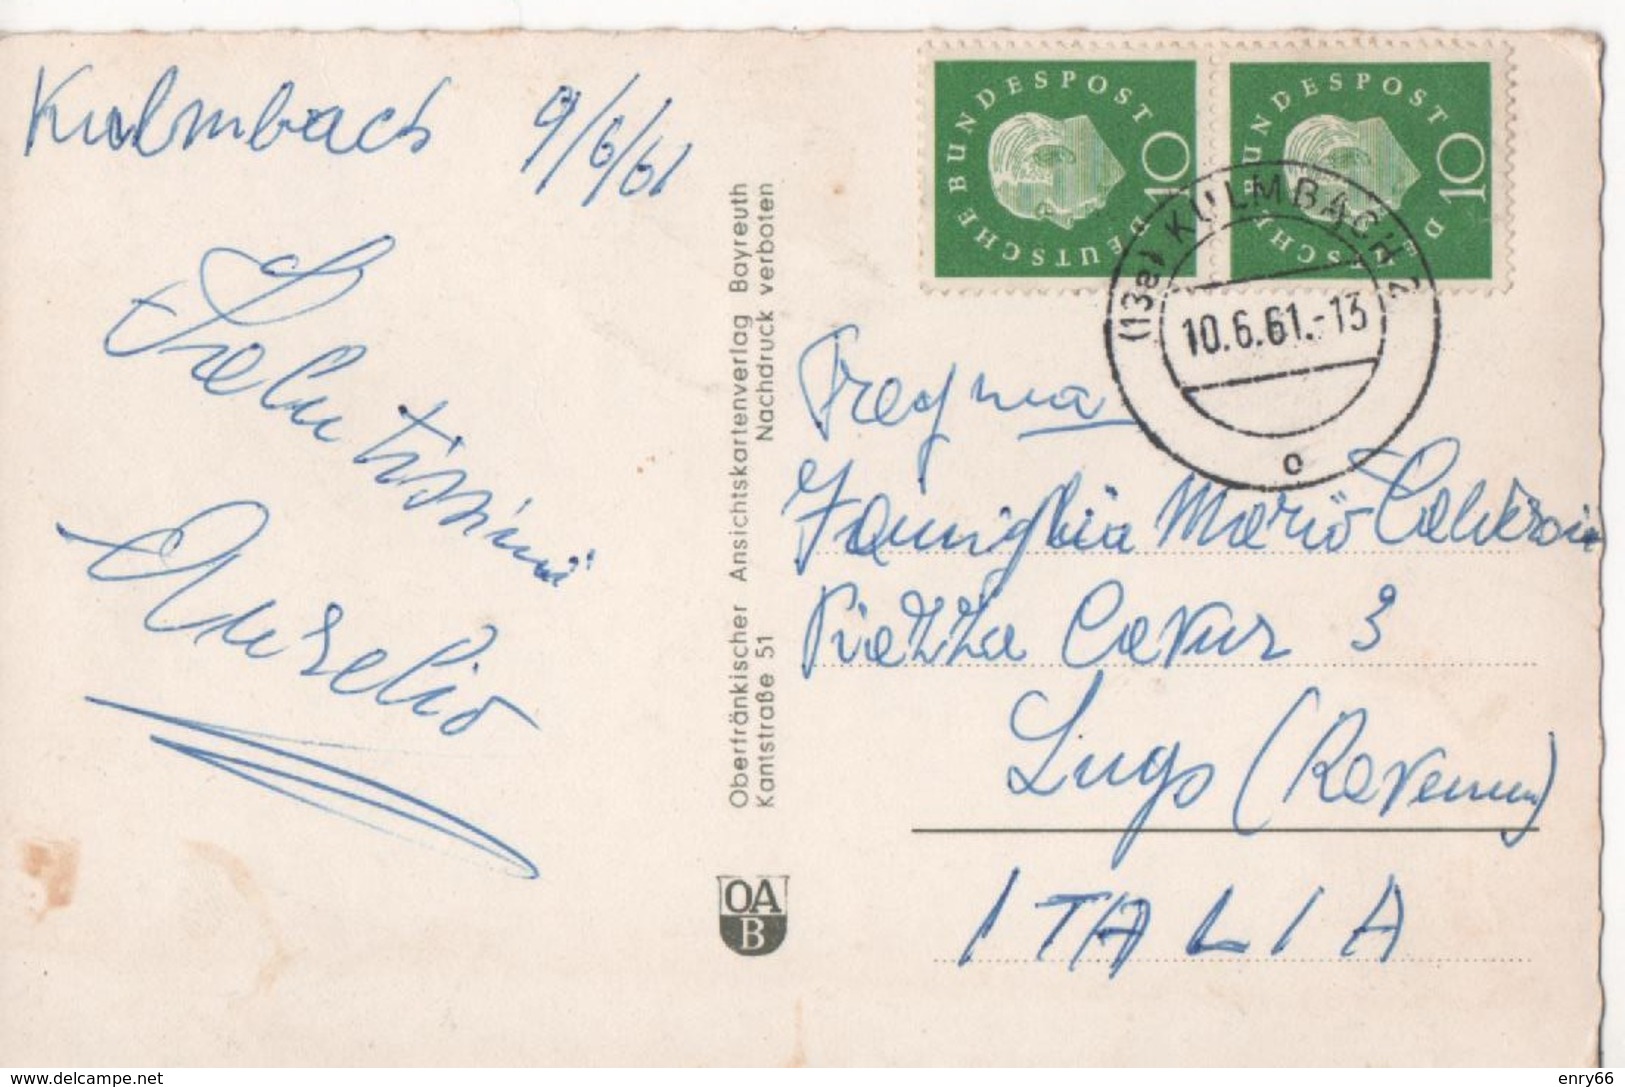 Kulmbach 9/6/61
Salutissimi
Aurelio
Oberfränkischer Ansichtskartenverlag Bayreuth
Kantstraße 51 Nachdruck verboten
OA
B
DEUTSCHE BUNDESPOST
10
DEUTSCHE BUNDESPOST
10
(13a) KULMBACH 2
10.6.61.-13
o
Famiglia Mario
Piazza Cavur 3
Lugo (Ravenna)
ITALIA
www.delcampe.net
enry66